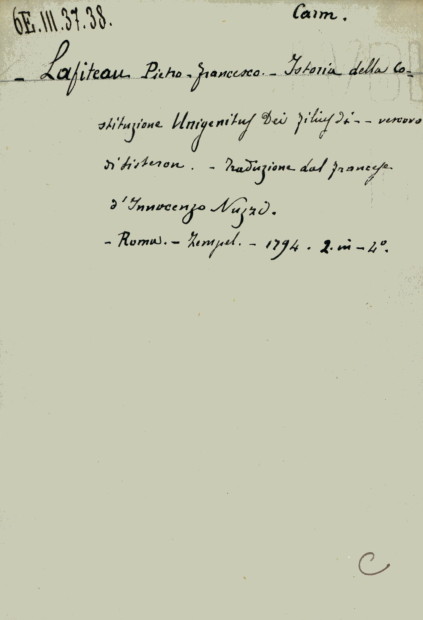 6E.III.37.38.
Carm.
- Lafiteau Pietro-Francesco. - Istoria della Co=
stituzione Unigenitus Dei Filius di - - vescovo
di Sisteron. - Traduzione dal Francese
d'Innocenzo Nuzzi.
- Roma. - Zempel. - 1794. 2. in - 4º.
C